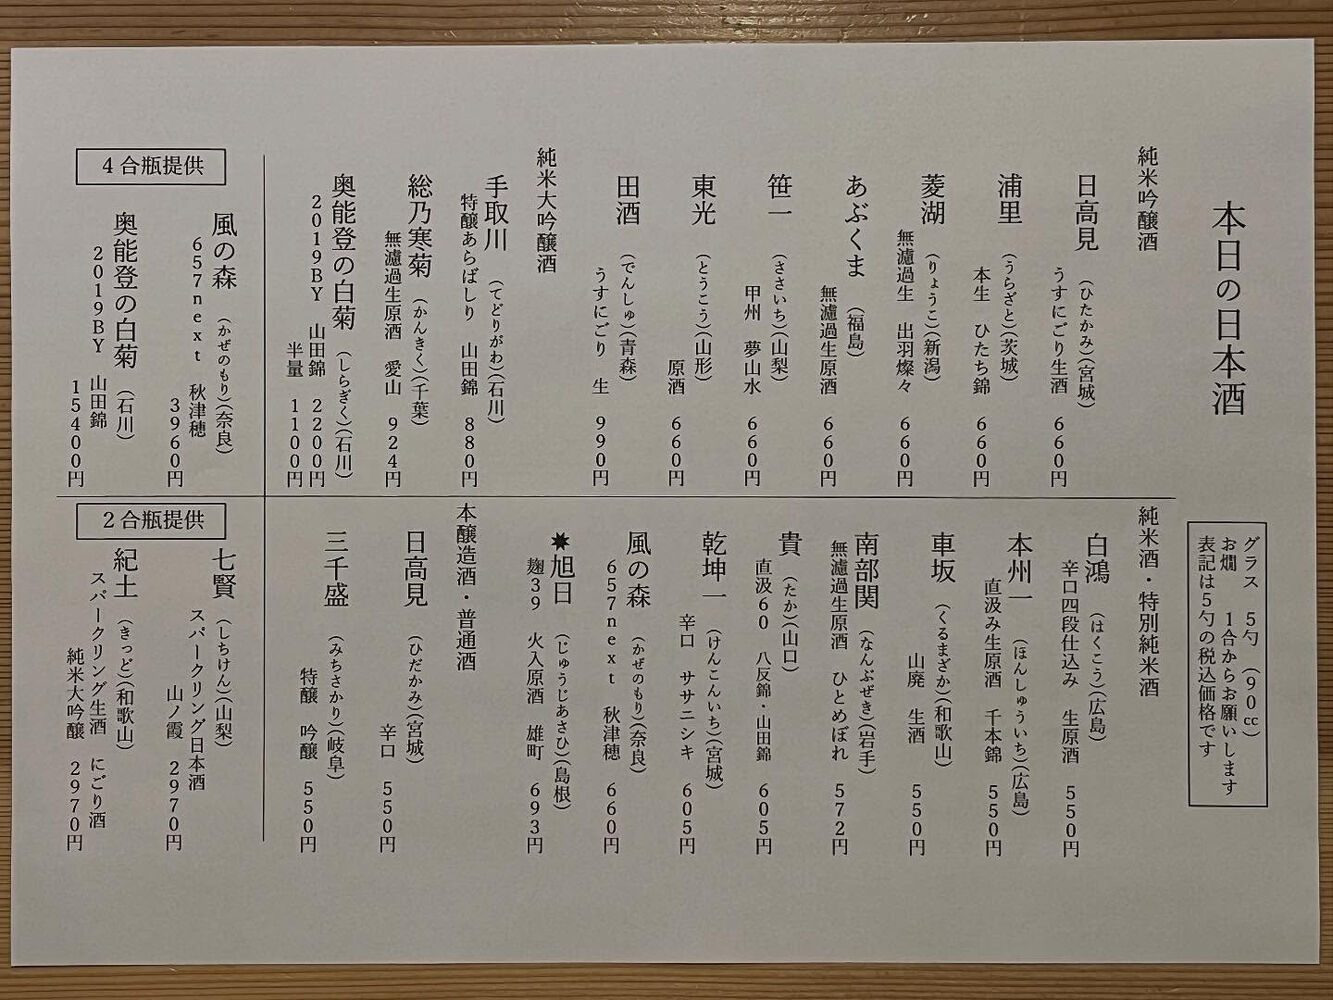 本日の日本酒
グラス 5勺 (90cc)
お燗 1合からお願いします
表記は5勺の税込価格です
純米吟醸酒
日高見 (ひたかみ)(宮城)
うすにごり生酒 660円
浦里 (うらざと)(茨城)
本生 ひたち錦 660円
菱湖 (りょうこ)(新潟)
無濾過生 出羽燦々 660円
あぶくま (福島)
無濾過生原酒 660円
笹一 (ささいち)(山梨)
甲州 夢山水 660円
東光 (とうこう)(山形)
原酒 660円
田酒 (でんしゅ)(青森)
うすにごり 生 990円
純米大吟醸酒
手取川 (てどりがわ)(石川)
特醸あらばしり 山田錦 880円
総乃寒菊 (かんきく)(千葉)
無濾過生原酒 愛山 924円
奥能登の白菊 (しらぎく)(石川)
2019BY 山田錦 2200円
半量 1100円
純米酒・特別純米酒
白鴻 (はくこう)(広島)
辛口四段仕込み 生原酒 550円
本州一 (ほんしゅういち)(広島)
直汲み生原酒 千本錦 550円
車坂 (くるまざか)(和歌山)
山廃 生酒 550円
南部関 (なんぶぜき)(岩手)
無濾過生原酒 ひとめぼれ 572円
貴 (たか)(山口)
直汲60 八反錦・山田錦 605円
乾坤一 (けんこんいち)(宮城)
辛口 ササニシキ 605円
風の森 (かぜのもり)(奈良)
657next 秋津穂 660円
✷旭日 (じゅうじあさひ)(島根)
麹39 火入原酒 雄町 693円
本醸造酒・普通酒
日高見 (ひだかみ)(宮城)
辛口 550円
三千盛 (みちさかり)(岐阜)
特醸 吟醸 550円
4合瓶提供
風の森 (かぜのもり)(奈良)
657next 秋津穂
3960円
奥能登の白菊 (石川)
2019BY 山田錦
15400円
2合瓶提供
七賢 (しちけん)(山梨)
スパークリング日本酒
山ノ霞 2970円
紀土 (きっど)(和歌山)
スパークリング生酒 にごり酒
純米大吟醸 2970円